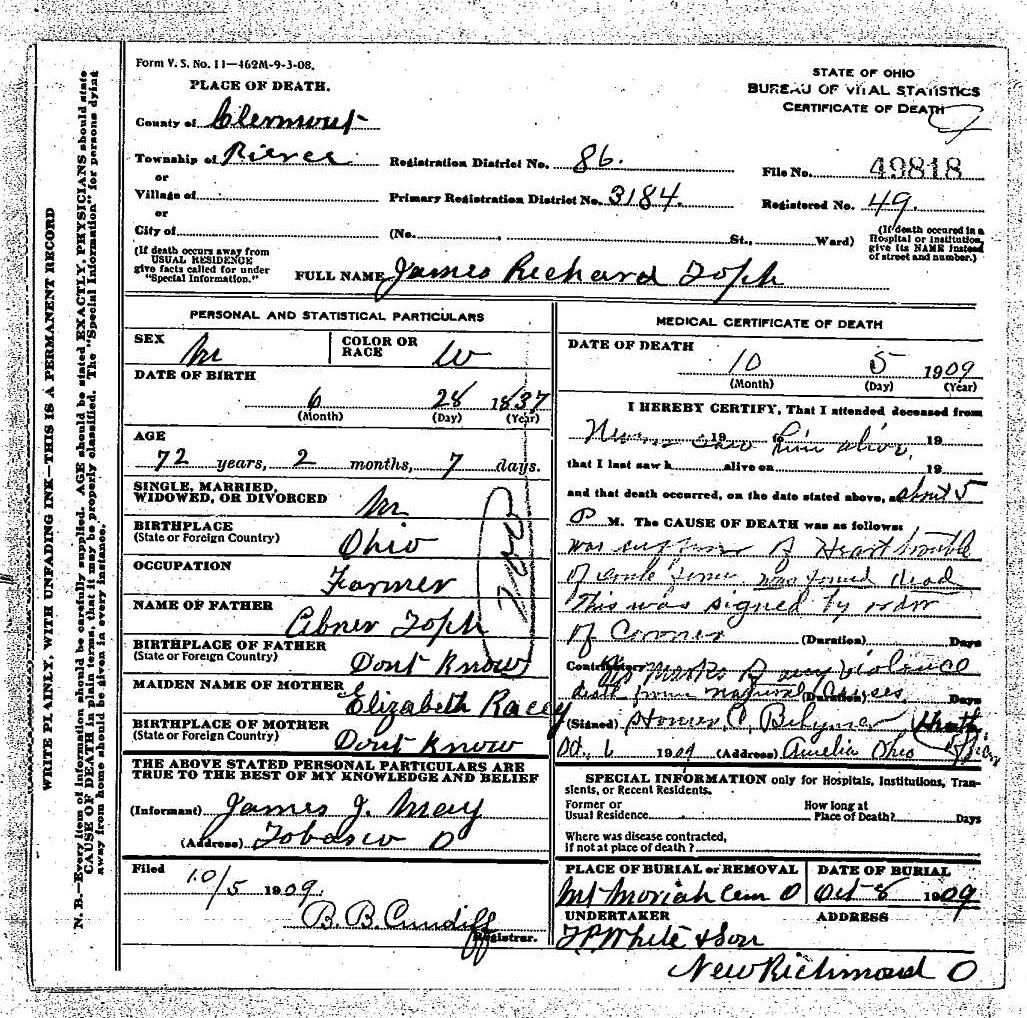 Form V. S. No. 11—462M-9-3-08.
PLACE OF DEATH.
STATE OF OHIO
BUREAU OF VITAL STATISTICS
CERTIFICATE OF DEATH
County of Clermont
Township of Pierce Registration District No. 86. File No. 49818
or
Village of Primary Registration District No. 3184. Registered No. 49.
or
City of (No. St., Ward) (If death occured in a Hospital or institution, give its NAME instead of street and number.)
(If death occurs away from USUAL RESIDENCE give facts called for under "Special Information.")
FULL NAME James Richard Toph
PERSONAL AND STATISTICAL PARTICULARS
SEX M COLOR OR RACE W
DATE OF BIRTH
6 28 1837
(Month) (Day) (Year)
AGE
72 years, 2 months, 7 days.
SINGLE, MARRIED, WIDOWED, OR DIVORCED M
BIRTHPLACE
(State or Foreign Country) Ohio
OCCUPATION
Farmer
NAME OF FATHER
Abner Toph
BIRTHPLACE OF FATHER
(State or Foreign Country) Dont Know
MAIDEN NAME OF MOTHER
Elizabeth Racey
BIRTHPLACE OF MOTHER
(State or Foreign Country) Dont Know
THE ABOVE STATED PERSONAL PARTICULARS ARE
TRUE TO THE BEST OF MY KNOWLEDGE AND BELIEF
(Informant) James J. May
(Address) Tobasco O
Filed 10/5 1909.
B. B. Cundiff
Registrar.
MEDICAL CERTIFICATE OF DEATH
DATE OF DEATH
10 5 1909
(Month) (Day) (Year)
I HEREBY CERTIFY, That I attended deceased from
Never 19 to him alive, 19
that I last saw h alive on 19
and that death occurred, on the date stated above, at about 5
P M. The CAUSE OF DEATH was as follows:
was of Heart trouble
of some time was found dead
This was signed by order
of Coroner (Duration) Days
Contributory No marks of any violence
death from natural causes (Duration) Days
(Signed) Homer C. Behymer Health
Oct. 6 1909 (Address) Amelia Ohio
SPECIAL INFORMATION only for Hospitals, Institutions, Transients, or Recent Residents.
Former or Usual Residence How long at Place of Death? Days
Where was disease contracted, if not at place of death?
PLACE OF BURIAL or REMOVAL DATE OF BURIAL
Mt Moriah Cem O Oct 8 1909
UNDERTAKER ADDRESS
T P White & Son
New Richmond O
WRITE PLAINLY, WITH UNFADING INK—THIS IS A PERMANENT RECORD
N. B.—Every item of information should be carefully supplied. AGE should be stated EXACTLY, PHYSICIANS should state
CAUSE OF DEATH in plain terms, that it may be properly classified. The "Special Information" for persons dying
away from home should be given in every instance.